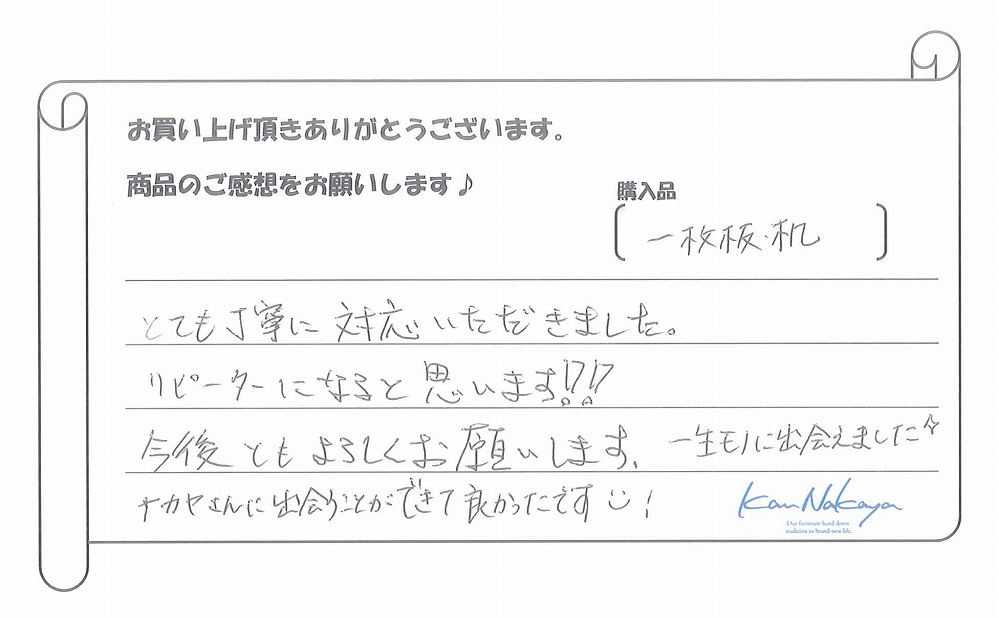 お買い上げ頂きありがとうございます。
商品のご感想をお願いします♪
購入品
一枚板・机
とても丁寧に対応いただきました。
リピーターになると思います!?!?
今後ともよろしくお願いします。 一生モノに出会えました☆
ナカヤさんに出会うことができて良かったです☺!
Kan Nakaya
Our furniture hand down
tradition to brand-new life.